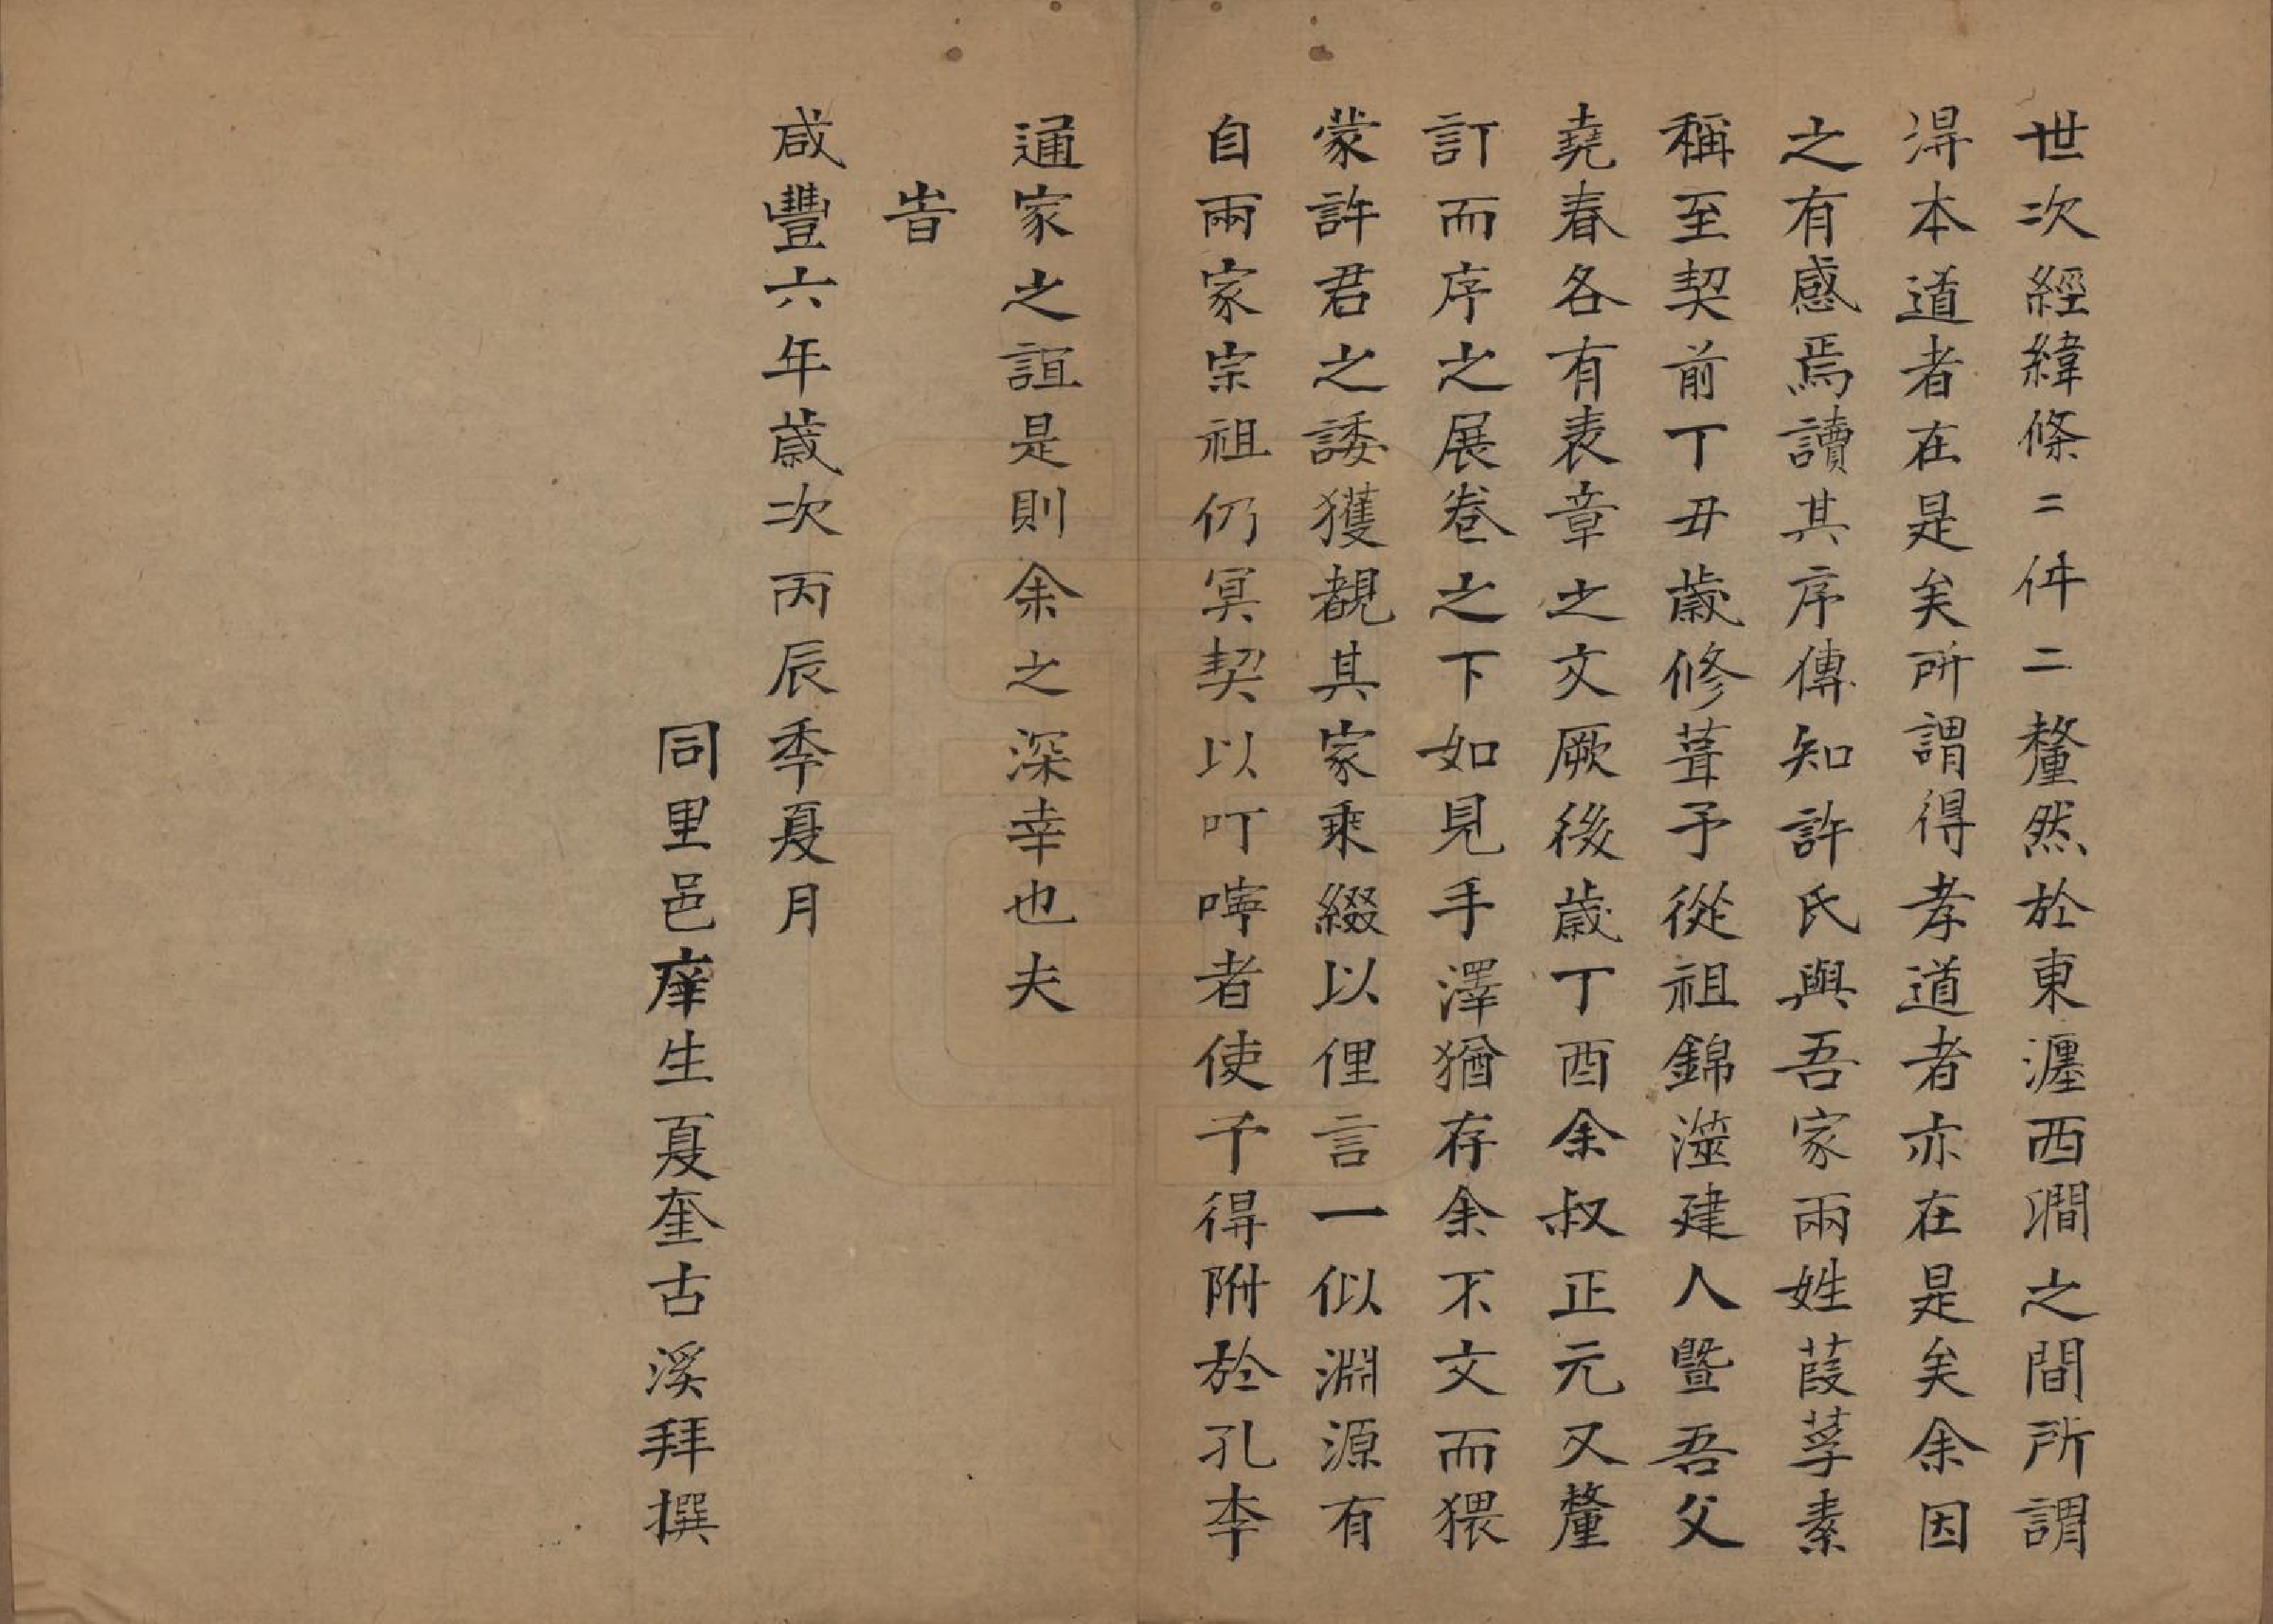 世次經緯條二件二釐然於東瀍西澗之間所謂
淂本道者在是矣所謂得孝道者亦在是矣余因
之有感焉讀其序傳知許氏與吾家兩姓葭莩素
稱至契前丁丑歲修葺予從祖錦澨建人暨吾父
堯春各有表章之文厥後歲丁酉余叔正元又釐
訂而序之展卷之下如見手澤猶存余不文而猥
蒙許君之諉獲覩其家乘綴以俚言一似淵源有
自兩家宗祖仍冥契以叮嚀者使予得附於孔李
通家之誼是則余之深幸也夫
旹
咸豐六年歲次丙辰季夏月
同里邑庠生夏奎古溪拜撰